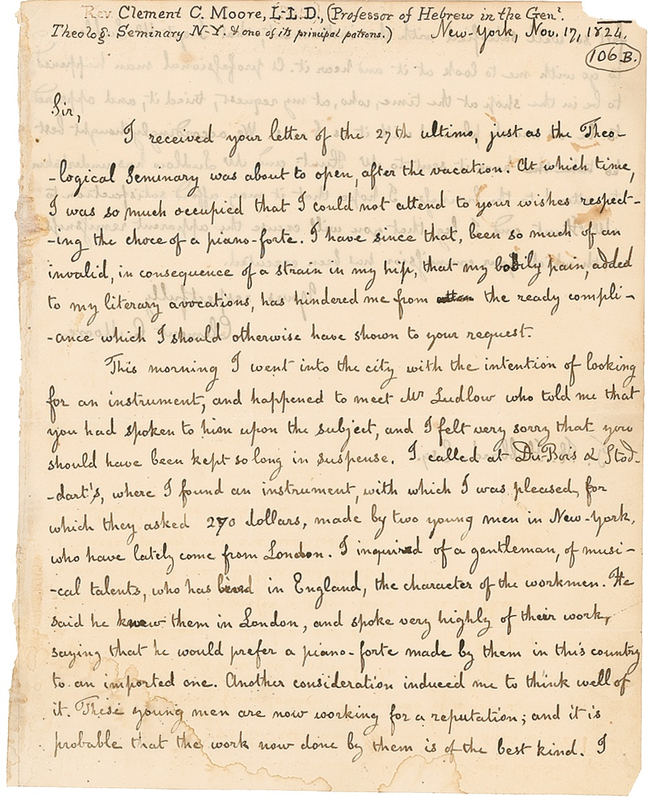 Rev Clement C. Moore, L-L. D., (Professor of Hebrew in the Genl.
Theolog. Seminary N-Y. & one of its principal patrons.) New-York, Nov. 17, 1824.
106 B.
Sir,
I received your letter of the 27th ultimo, just as the Theo-
-logical Seminary was about to open, after the vacation. At which time,
I was so much occupied that I could not attend to your wishes respect-
-ing the choce of a piano-forte. I have since that, been so much of an
invalid, in consequence of a strain in my hip, that my bodily pain, added
to my literary avocations, has hindered me from the ready compli-
-ance which I should otherwise have shown to your request.
This morning I went into the city with the intention of looking
for an instrument, and happened to meet Mr Ludlow who told me that
you had spoken to him upon the subject, and I felt very sorry that you
should have been kept so long in suspense. I called at Du-Bois & Stod-
-dart's, where I found an instrument, with which I was pleased, for
which they asked 270 dollars, made by two young men in New-York,
who have lately come from London. I inquired of a gentleman, of musi-
-cal talents, who has lived in England, the character of the workmen. He
said he knew them in London, and spoke very highly of their work,
saying that he would prefer a piano-forte made by them in this country
to an imported one. Another consideration induced me to think well of
it. These young men are now working for a reputation; and it is
probable that the work now done by them is of the best kind. I